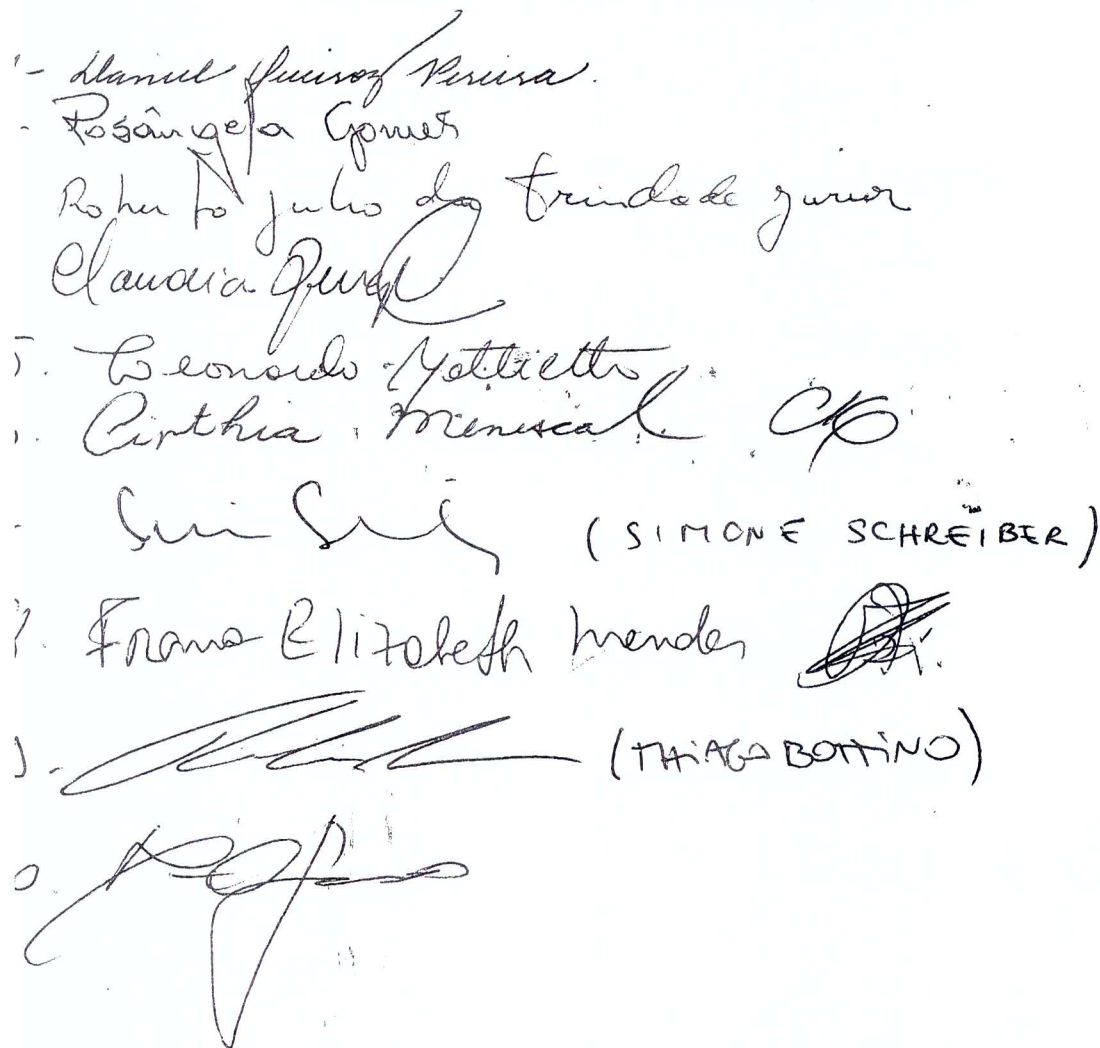 - Daniel Queiroz Pereira
- Rosângela Gomes
Roberto Julio da Trindade Junior
Claudia
5. Leonardo Mattietto
Cinthia Meniscal
- (SIMONE SCHREIBER)
Elizabeth Mendes
- (THIAGO BOTTINO)